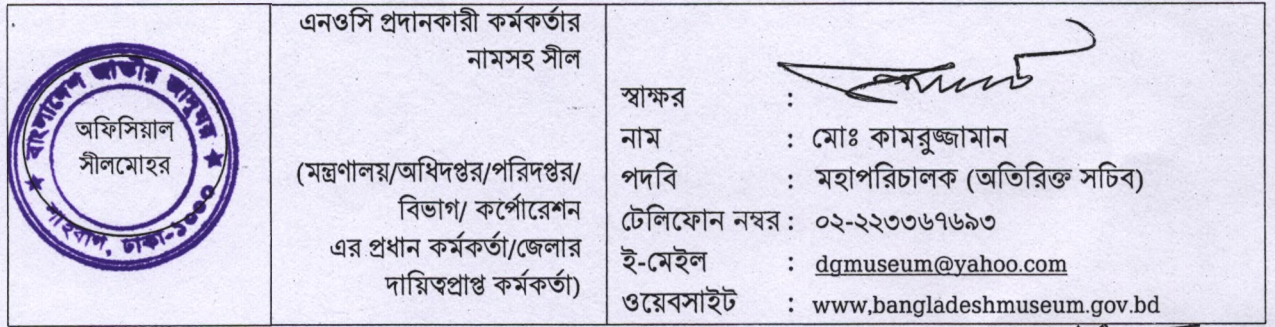 বাংলাদেশ জাতীয় জাদুঘর
অফিসিয়াল
সীলমোহর
শাহবাগ, ঢাকা-১০০০
এনওসি প্রদানকারী কর্মকর্তার
নামসহ সীল
(মন্ত্রণালয়/অধিদপ্তর/পরিদপ্তর/
বিভাগ/ কর্পোরেশন
এর প্রধান কর্মকর্তা/জেলার
দায়িত্বপ্রাপ্ত কর্মকর্তা)
স্বাক্ষর :
নাম : মোঃ কামরুজ্জামান
পদবি : মহাপরিচালক (অতিরিক্ত সচিব)
টেলিফোন নম্বর : ০২-২২৩৩৬৭৬৯৩
ই-মেইল : dgmuseum@yahoo.com
ওয়েবসাইট : www,bangladeshmuseum.gov.bd